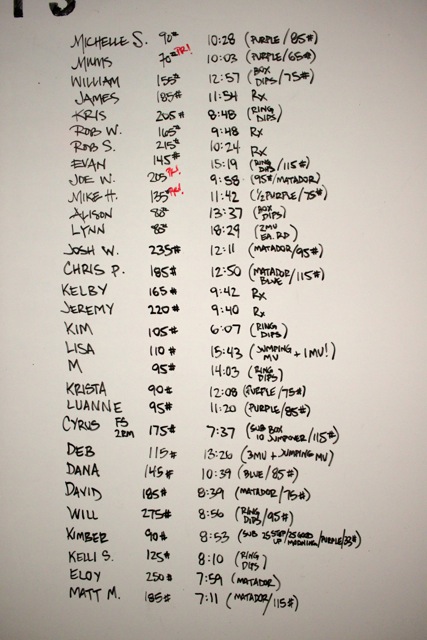 MICHELLE S. 90# 10:28 (PURPLE/85#)
MIMS 70# PR! 10:03 (PURPLE/65#)
WILLIAM 155# 12:57 (BOX DIPS/75#)
JAMES 185# 11:54 Rx
KRIS 205# 8:48 (RING DIPS)
ROB W. 165# 9:48 Rx
ROB S. 215# 10:24 Rx
EVAN 145# 15:19 (RING DIPS/115#)
JOE W. 205# PR! 9:58 (95#/MATADOR)
MIKE H. 135# PR! 11:42 (1/2 PURPLE/75#)
ALISON 80# 13:37 (BOX DIPS)
LYNN 80# 18:29 (2MU EA. RD)
JOSH W. 235# 12:11 (MATADOR/95#)
CHRIS P. 185# 12:50 (MATADOR BLUE/115#)
KELBY 165# 9:42 Rx
JEREMY 220# 9:40 Rx
KIM 105# 6:07 (RING DIPS)
LISA 110# 15:43 (JUMPING MU + 1MU!)
M 95# 14:03 (RING DIPS)
KRISTA 90# 12:08 (PURPLE/75#)
LUANNE 95# 11:20 (PURPLE/85#)
CYRUS FS 2RM 175# 7:37 (SUB BOX 10 JUMPOVER/115#)
DEB 115# 13:26 (3MU + JUMPING MU)
DANA 145# 10:39 (BLUE/85#)
DAVID 185# 8:39 (MATADOR/75#)
WILL 275# 8:56 (RING DIPS/95#)
KIMBER 90# 8:53 (SUB 25 STEP UP/25 GOOD MORNING/PURPLE/33#)
KELLI S. 125# 8:10 (RING DIPS)
ELOY 250# 7:59 (MATADOR)
MATT M. 185# 7:11 (MATADOR/115#)